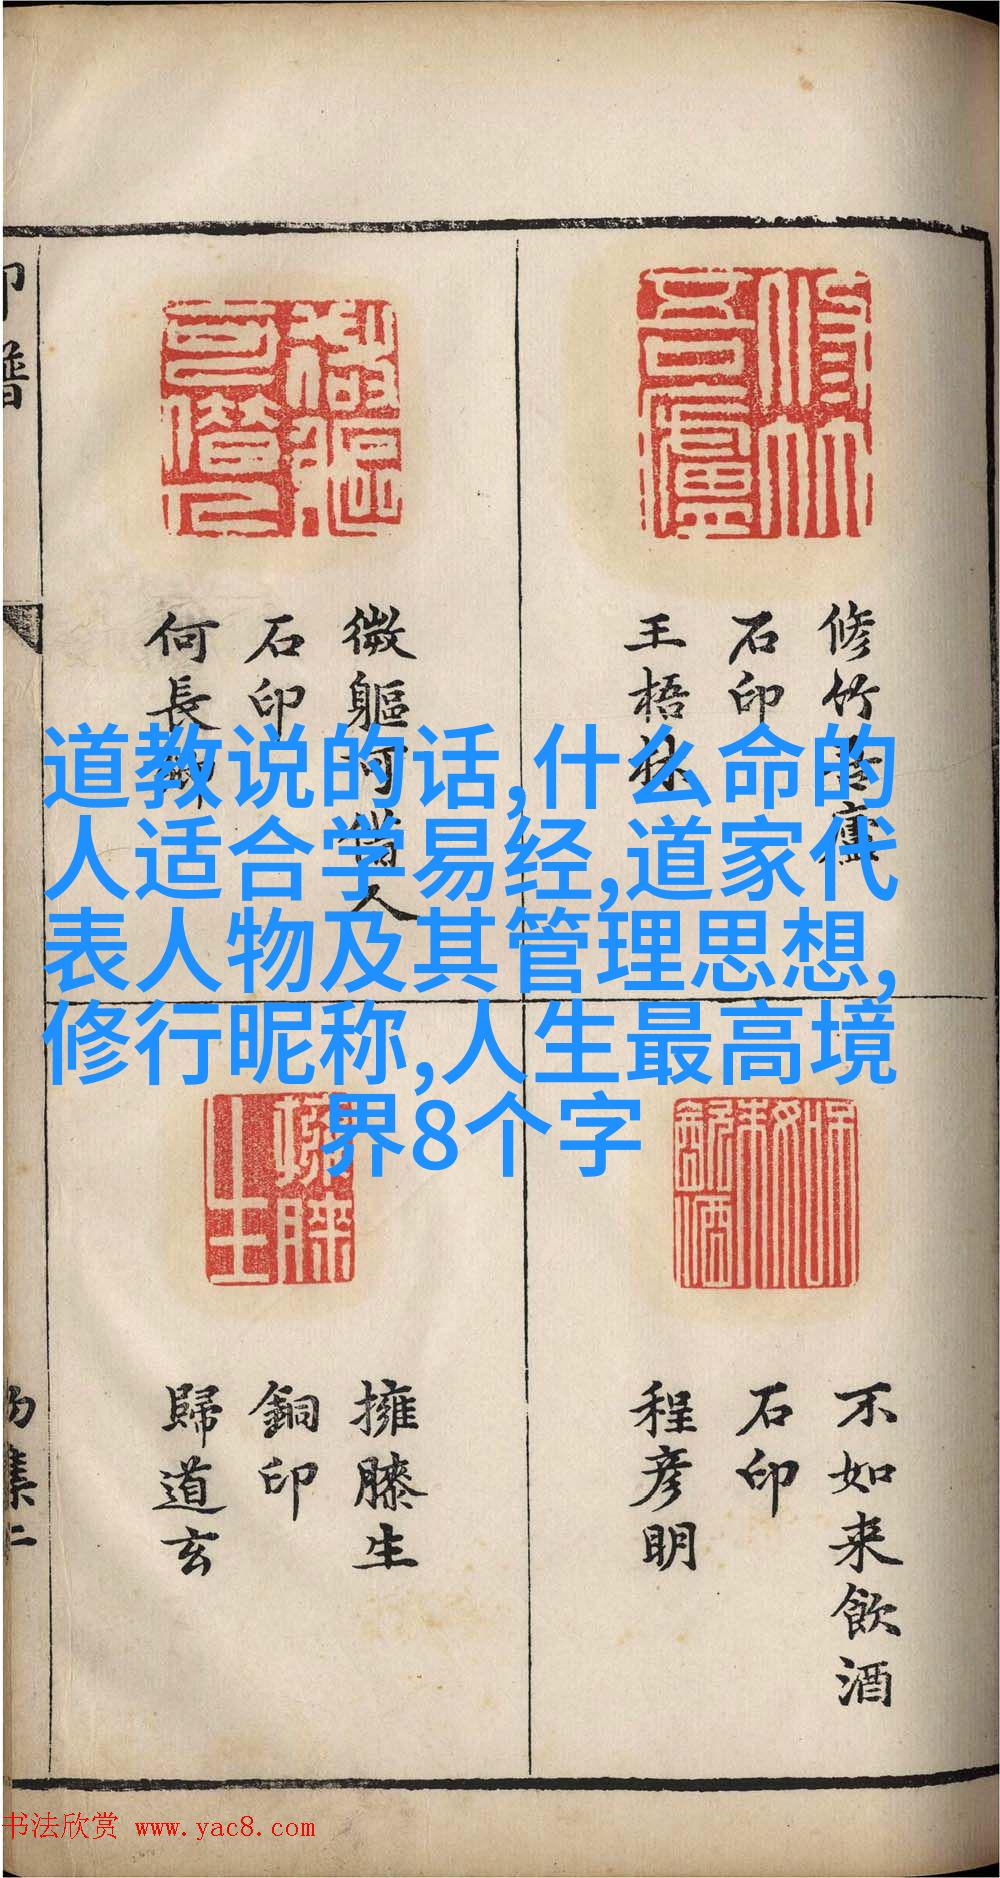 修竹吾廬
石印
王梧林
微軀可借人
石印
何長卿
道教说的话,什么命的
人适合学易经,道家代
表人物及其管理思想,
修行昵称,人生最高境
界8个字
不如来飲酒
石印
程彦明
擁膝生
銅印
歸道玄
书法欣赏 www.yac8.com